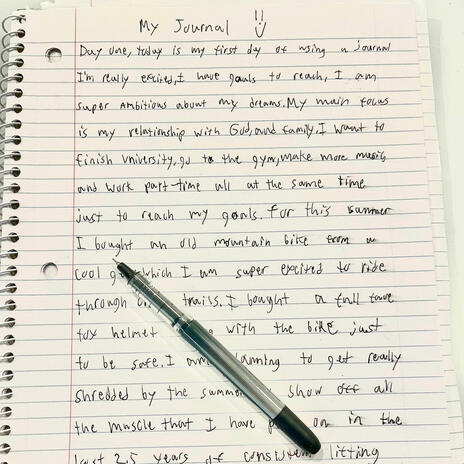 My Journal !!
Day one, today is my first day of using a journal
I'm really excited, I have goals to reach, I am
super ambitious about my dreams. My main focus
is my relationship with God, and family, I want to
finish University, go to the gym, make more music
and work part-time all at the same time
just to reach my goals. For this summer
I bought an old mountain bike from a
cool which I am super excited to ride
through trails. I bought a full face
fox helmet with the bike just
to be safe. I am to get really
shredded by the show off all
the muscle that I have on in the
last 2.5 years of consistent lifting